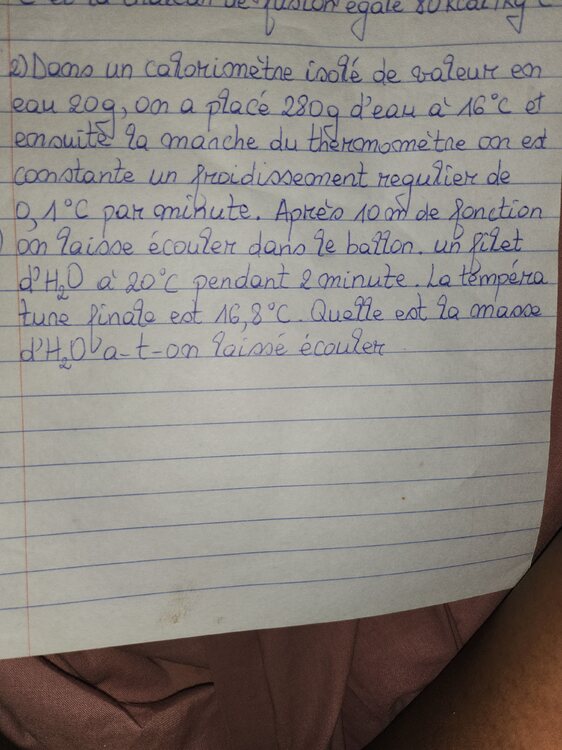 fusion égale 80 kcal/kg
2) Dans un caloriomètre isolé de valeur en
eau 20g, on a placé 280g d'eau à 16°C et
ensuite la manche du thermomètre on est
constante un froidissement regulier de
0,1°C par minute. Après 10 m de fonction
on laisse écouler dans le ballon. un filet
d'H₂O à 20°C pendant 2 minute. La tempéra
ture finale est 16,8°C. Quelle est la masse
d'H₂O a-t-on laissé écouler